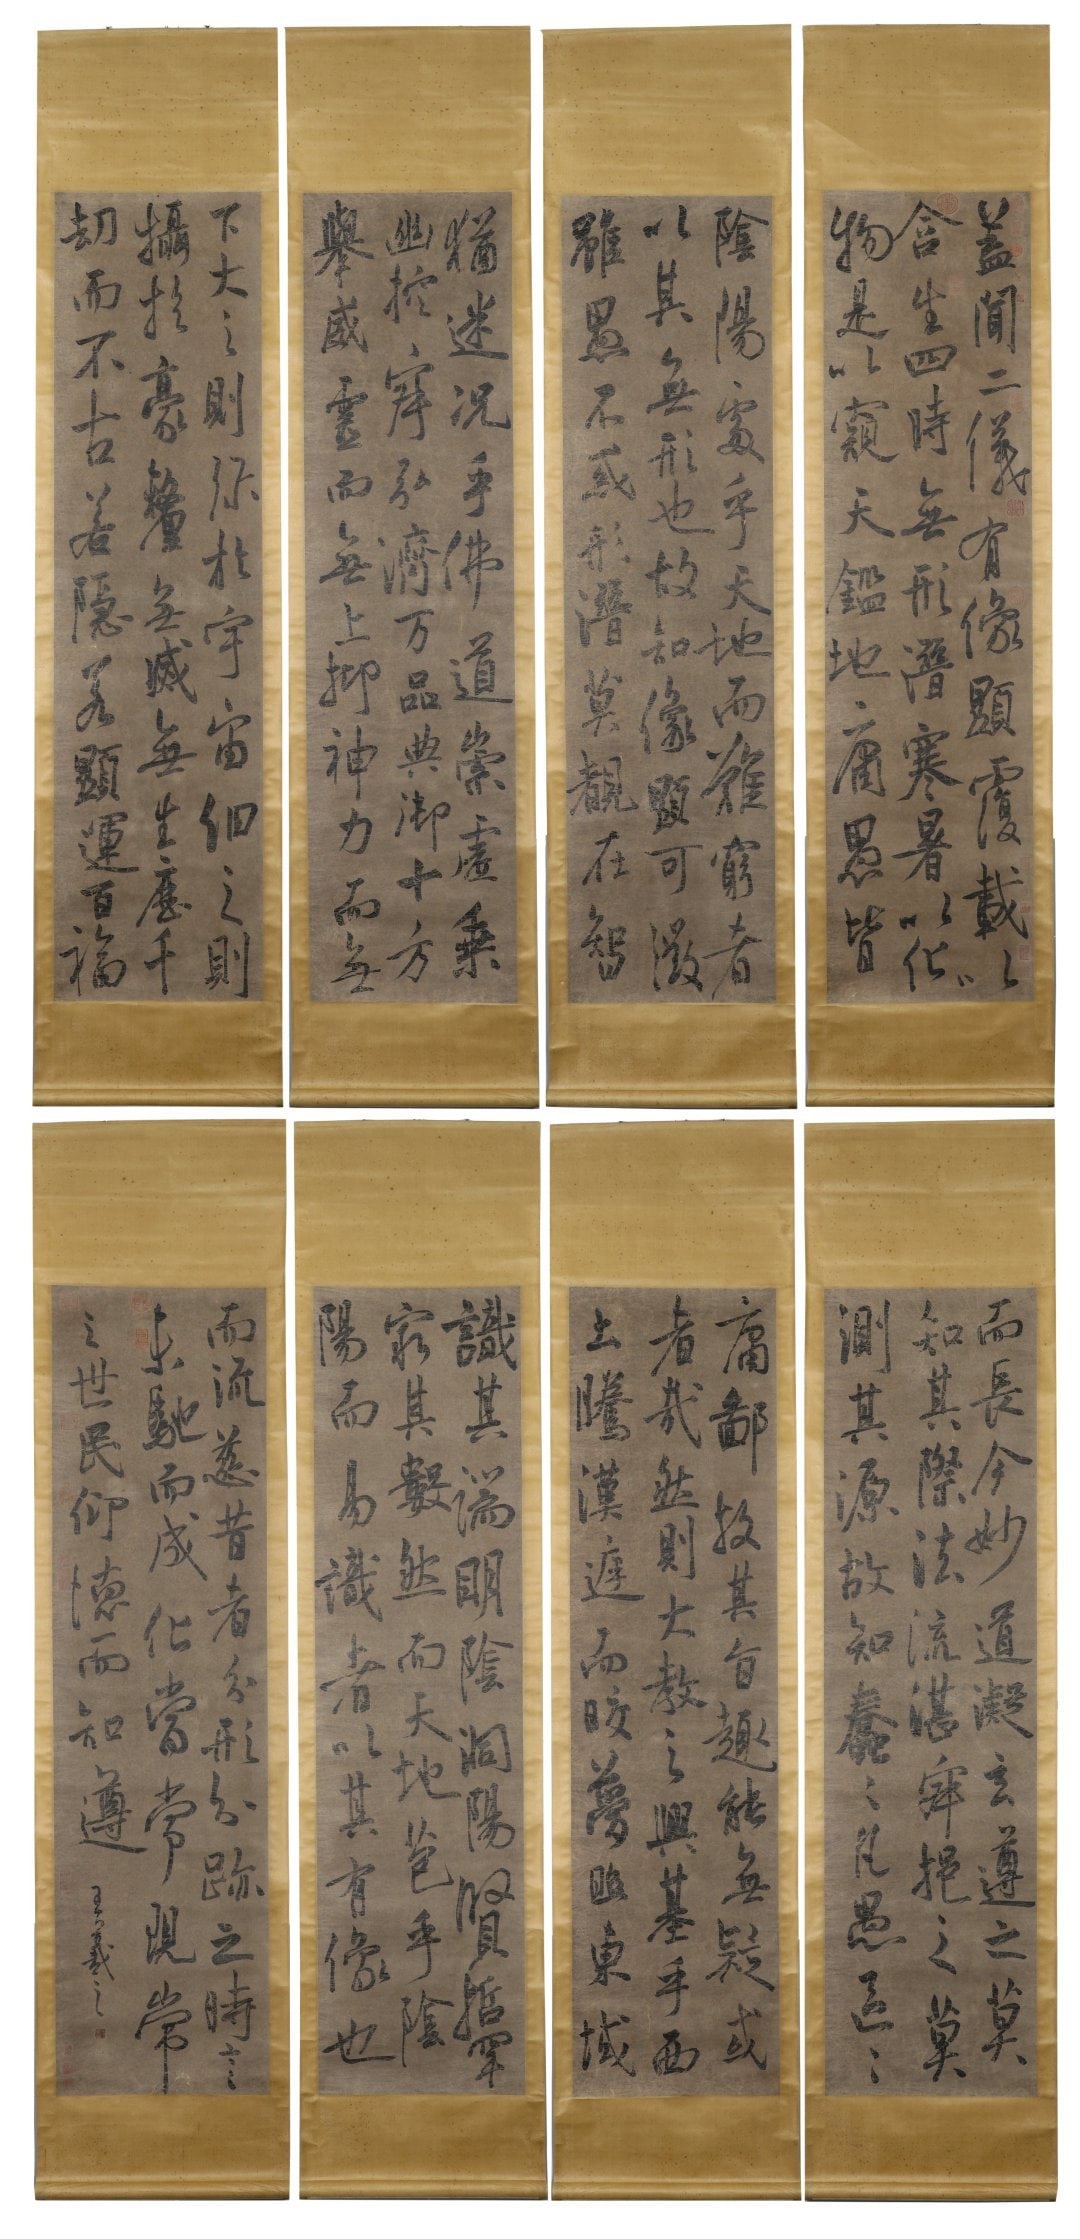 蓋聞二儀有像顯覆載以
含生四時無形潛寒暑以化
物是以窺天鑑地庸愚皆
陰陽處乎天地而難窮者
以其無形也故知像顯可徵
雖愚不惑形潛莫覩在智
猶迷況乎佛道崇虛乘
幽控寂弘濟万品典御十方
舉威靈而無上抑神力而無
下大之則弥於宇宙細之則
攝於豪釐無滅無生歷千
劫而不古若隱若顯運百福
而長今妙道凝玄遵之莫
知其際法流湛寂挹之莫
測其源故知蠢〻凡愚區〻
庸鄙投其旨趣能無疑或
者哉然則大教之興基乎西
土騰漢庭而皎夢照東域
識其端明陰洞陽賢哲罕
窮其數然而天地苞乎陰
陽而易識者以其有像也
而流慈昔者分形分跡之時言
未馳而成化當常現常
之世民仰德而知遵
王羲之